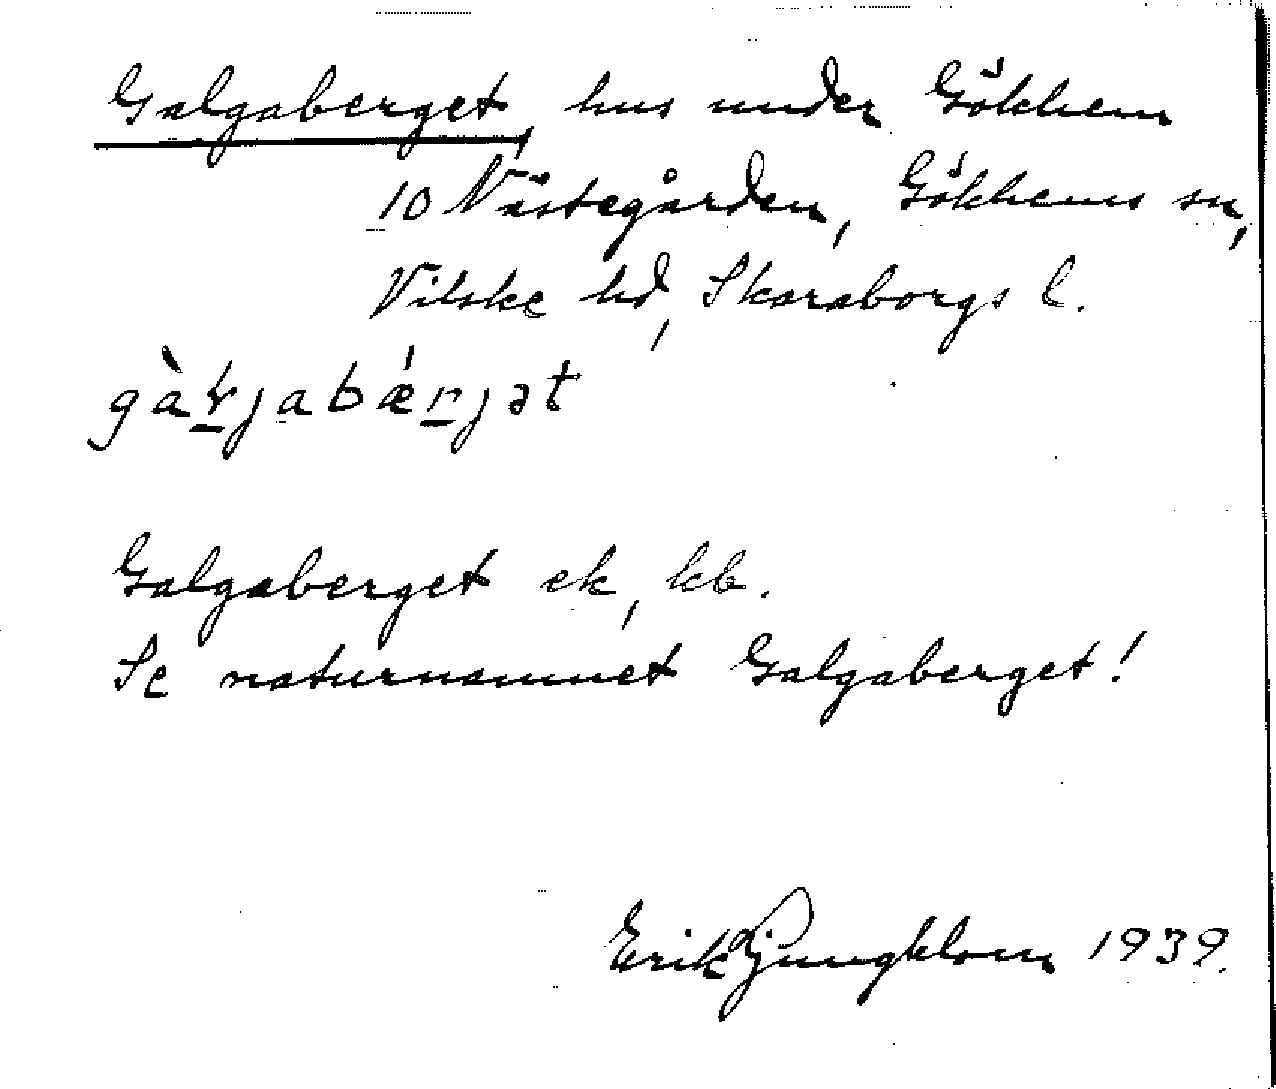 Galgaberget, hus under Gökhem
10 Västegården, Gökhems sn,
Vilske hd, Skaraborgs l.
gàrjabǽrjət
Galgaberget ek, kb.
Se naturnamnet Galgaberget!
Erik Ljungblom 1939.